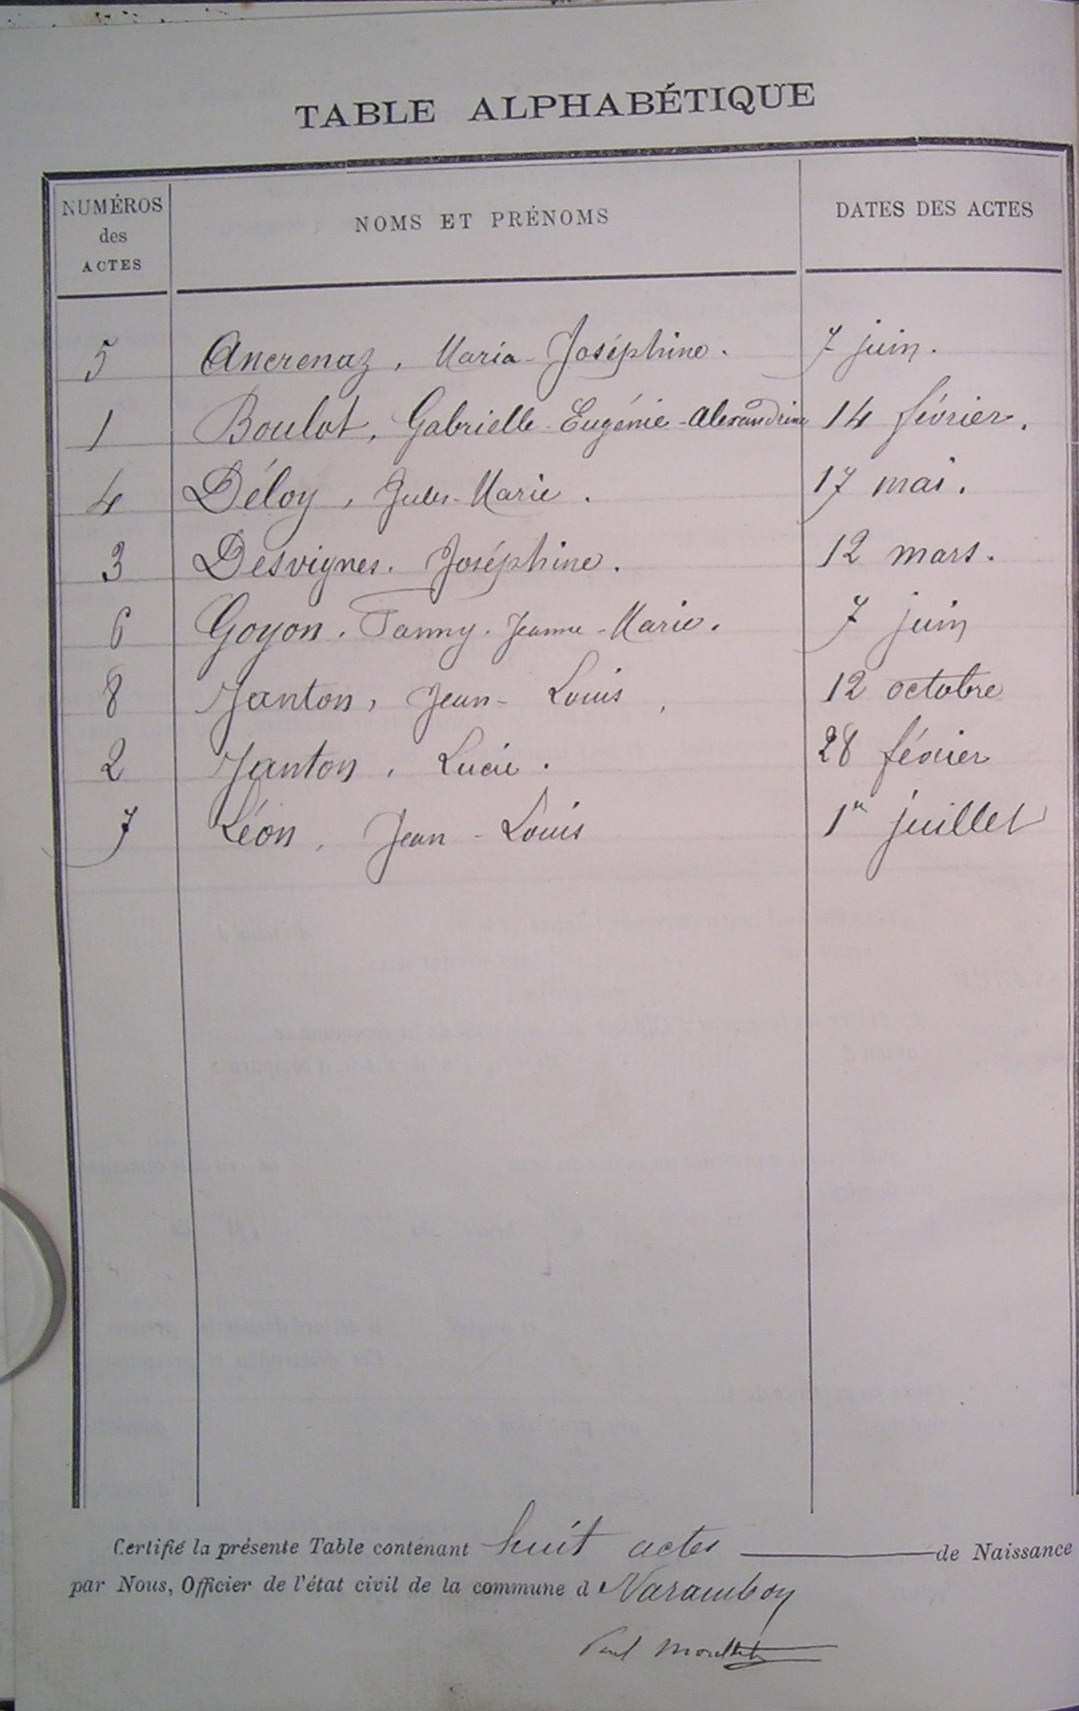 TABLE ALPHABÉTIQUE
NUMÉROS des ACTES NOMS ET PRÉNOMS DATES DES ACTES
5 Ancrenaz, Maria-Joséphine. 7 juin.
1 Boulot, Gabrielle-Eugénie-Alexandrine 14 février.
4 Déloy, Jules-Marie. 17 mai.
3 Desvignes. Joséphine. 12 mars.
6 Goyon. Fanny. Jeanne-Marie. 7 juin
8 Janton, Jean-Louis, 12 octobre
2 Janton, Lucie. 28 février
7 Léon, Jean-Louis 1er juillet
Certifié la présente Table contenant huit actes de Naissance
par Nous, Officier de l'état civil de la commune d Varambon
Paul